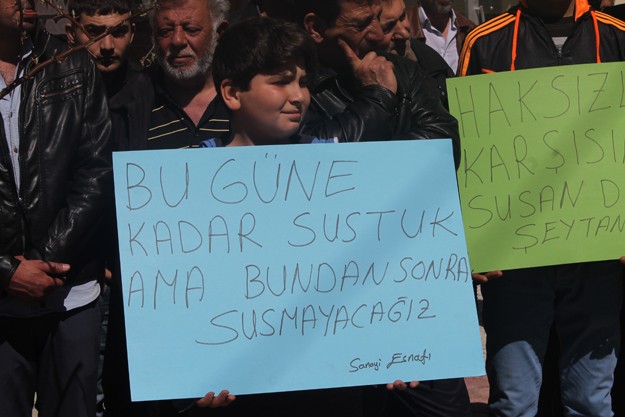 BU GÜNE
KADAR SUSTUK
AMA BUNDAN SONRA
SUSMAYACAĞIZ
Sanayi Esnafı
KARŞISI
SUSAN D
ŞEYTAN